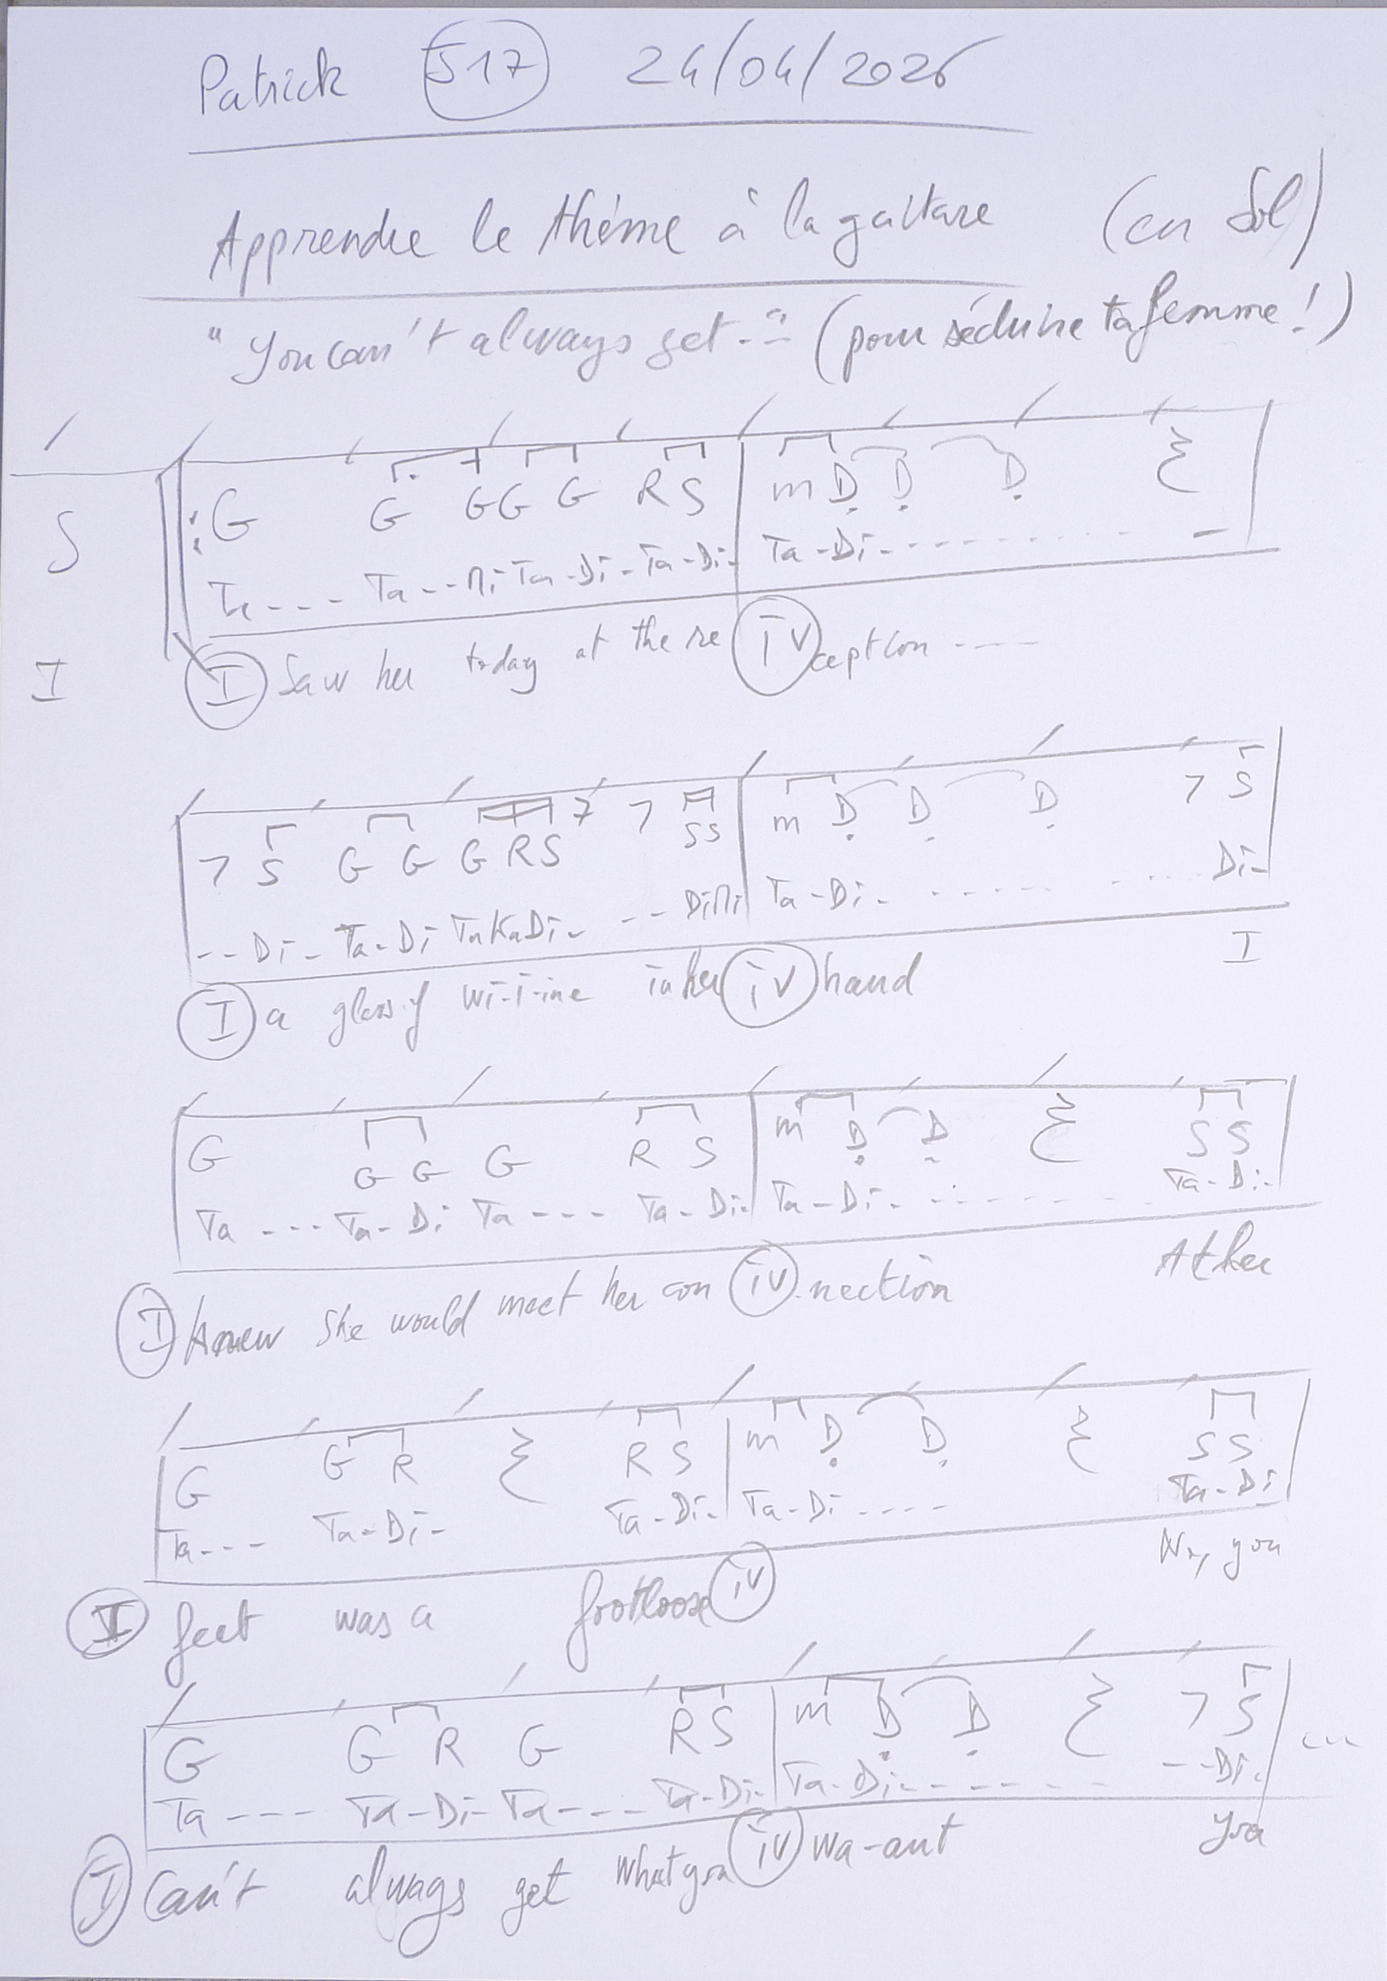 Patrick S17 24/04/2026
Apprendre le thème à la guitare (en Sol)
"You can't always get..." (pour séduire ta femme!)
S :G G GG G R S m D D D
Ta --- Ta -- Mi Ta - Di - Ta - Di - Ta - Di -
I I Saw her today at the re IV ception ----
7 S G G G R S 7 7 S S m D D D 7 S
-- Di - Ta - Di TaKaDi - -- DiMi Ta - Di - Di -
I a glass of wi-i-ine in her IV hand I
G G G G R S m D D S S
Ta --- Ta - Di Ta --- Ta - Di - Ta - Di - Ta - Di -
I knew she would meet her con IV nection At her
G G R R S m D D S S
Ta --- Ta - Di - Ta - Di - Ta - Di ---- Ta - Di
I feet was a footloose IV No, you
G G R G R S m D D 7 S ...
Ta ---- Ta - Di - Ta --- Ta - Di - Ta - Di - -- Di -
I Can't always get what you IV wa-ant You